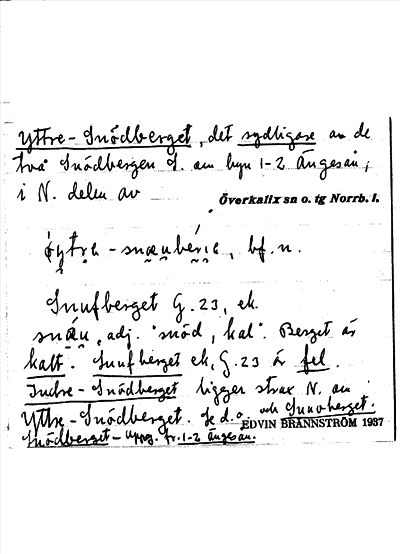 Yttre-Snödberget, det sydligase av de
två Snödbergen S. om byn 1-2 Ängesån,
i N. delen av
Överkalix sn o. tg Norrb. l.
bf. n.
Snufberget G. 23, ek.
adj. "snöd, kal". Berget är
kalt. Snufberget ek, G. 23 är fel.
Indre-Snödberget ligger strax N. om
Yttre-Snödberget. Se d.o. och Snuvberget.
EDVIN BRÄNNSTRÖM 1937
Snödberget - uppg. fr. 1-2 Ängesån.